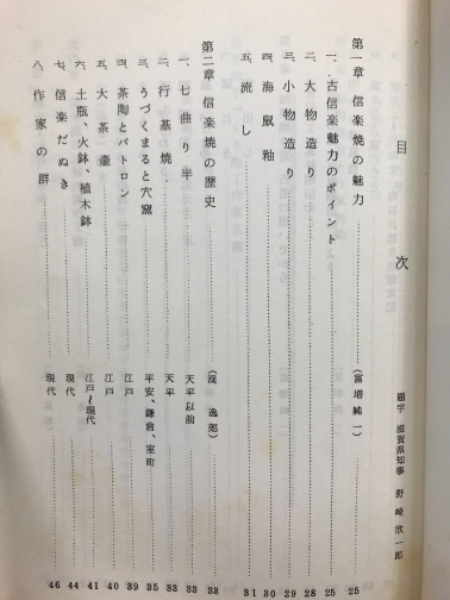 目次
題字 滋賀県知事 野崎欣一郎
第一章 信楽焼の魅力……(富増純一) 25
一、古信楽魅力のポイント……25
二、大物造り……28
三、小物造り……29
四、海鼠釉……30
五、流し……31
第二章 信楽焼の歴史……(逸郎) 33
一、七曲り半……天平以前 33
二、行基焼……天平 33
三、うづくまると穴窯……平安、鎌倉、室町 35
四、茶陶とパトロン……江戸 39
五、大茶壷……江戸 40
六、土瓶、火鉢、植木鉢……江戸〜現代 41
七、信楽だぬき……現代 44
八、作家の群……現代 46